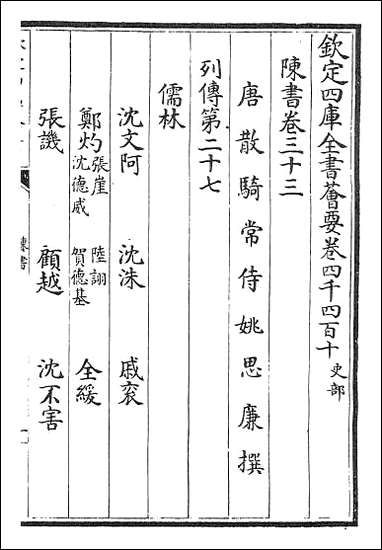 欽定四庫全書薈要卷四千四百十 史部
陳書卷三十三
唐散騎常侍姚思廉撰
列傳第二十七
儒林
沈文阿 沈洙 戚衮
鄭灼 張崖 陸詡 沈德威 賀德基 全緩
張譏 顧越 沈不害
陳書